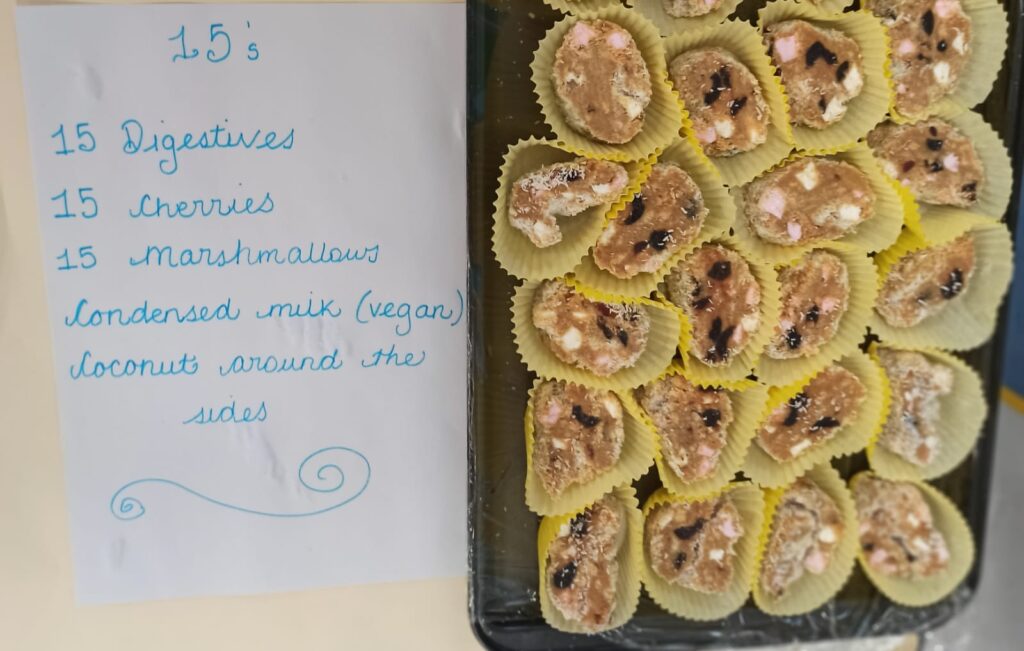 15's
15 Digestives
15 Cherries
15 Marshmallows
Condensed milk (vegan)
Coconut around the
sides